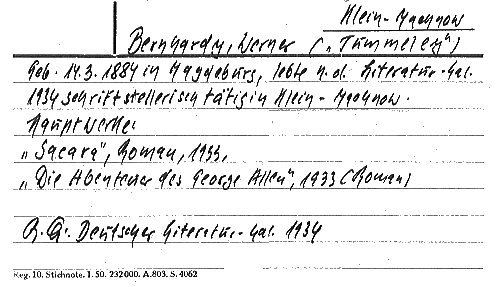 Klein-Machnow
Bernhardy, Werner („Tümmeley")
Geb. 14.3.1884 in Magdeburg, lebte n. d. Literatur-Kal.
1934 schriftstellerisch tätig in Klein-Machnow.
Hauptwerke:
„Sacara", Roman, 1933,
„Die Abenteuer des George Allen", 1933 (Roman)
R. Q. Deutscher Literatur-Kal. 1934
Reg. 10. Stichnote. I. 50. 232000. A.803. S. 4062